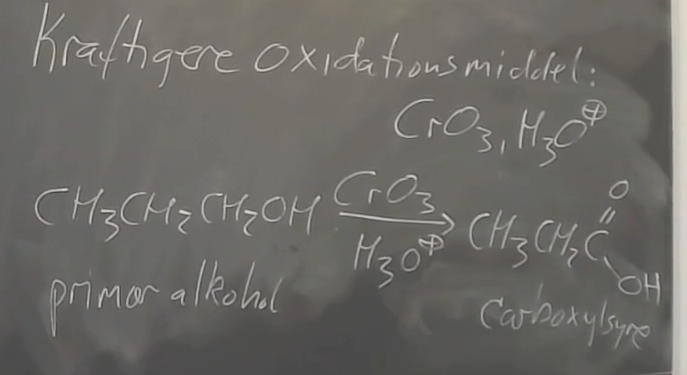 Kraftigere oxidationsmiddel:
CrO3, H3O⊕
CH3CH2CH2OH CrO3 H3O⊕ → CH3CH2C=O OH
primær alkohol
Carboxylsyre